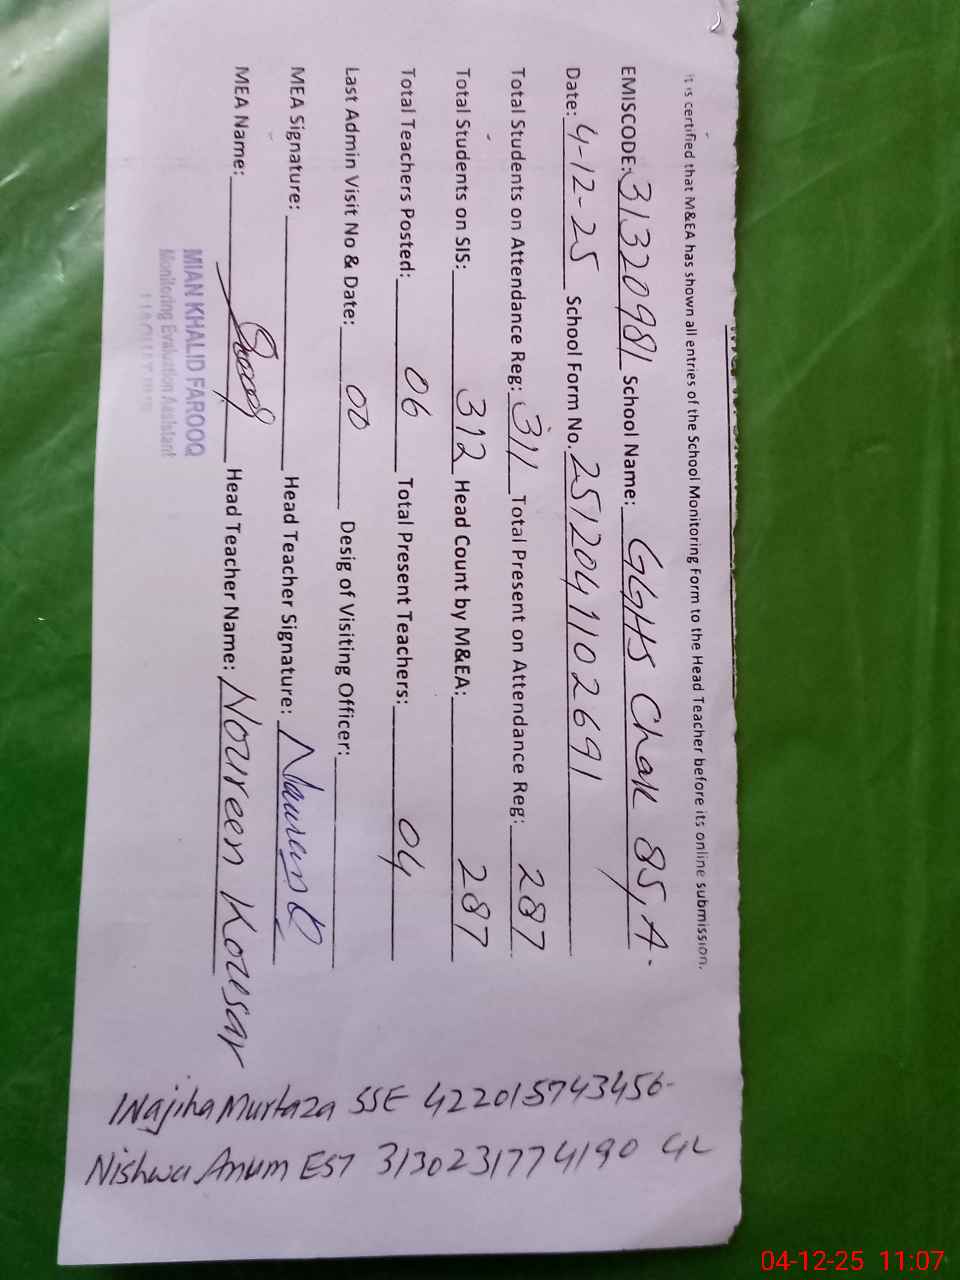 It is certified that M&EA has shown all entries of the School Monitoring Form to the Head Teacher before its online submission.
EMISCODE: 31320981 School Name: GGHS Chak 85, A.
Date: 4-12-25 School Form No. 2512041102691
Total Students on Attendance Reg: 311 Total Present on Attendance Reg: 287
Total Students on SIS: 312 Head Count by M&EA: 287
Total Teachers Posted: 06 Total Present Teachers: 04
Last Admin Visit No & Date: 00 Desig of Visiting Officer:
MEA Signature: Head Teacher Signature:
MEA Name: Head Teacher Name: Noureen Kousar
MIAN KHALID FAROOQ
Monitoring Evaluation Assistant
Wajiha Murtaza SSE 422015743456
Nishwa Anum EST 3130231774190 CL
04-12-25 11:07